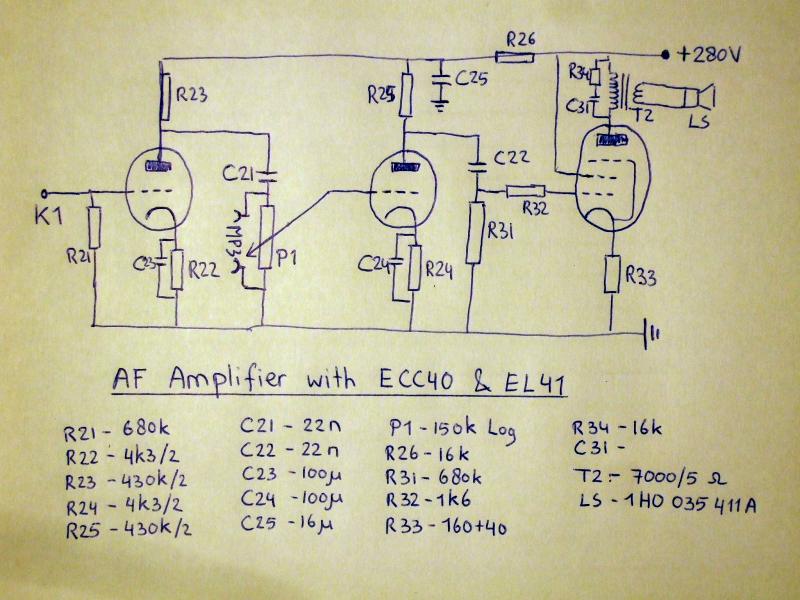 R26
+280V
R23
R25
C25
R34
C31
T2
LS
C21
C22
K1
MP3
R32
R21
C23
R22
P1
C24
R24
R31
R33
AF Amplifier with ECC40 & EL41
R21 - 680k
R22 - 4k3/2
R23 - 430k/2
R24 - 4k3/2
R25 - 430k/2
C21 - 22n
C22 - 22n
C23 - 100μ
C24 - 100μ
C25 - 16μ
P1 - 150k Log
R26 - 16k
R31 - 680k
R32 - 1k6
R33 - 160+40
R34 - 16k
C31 -
T2 :- 7000/5 Ω
LS - 1HO 035 411A